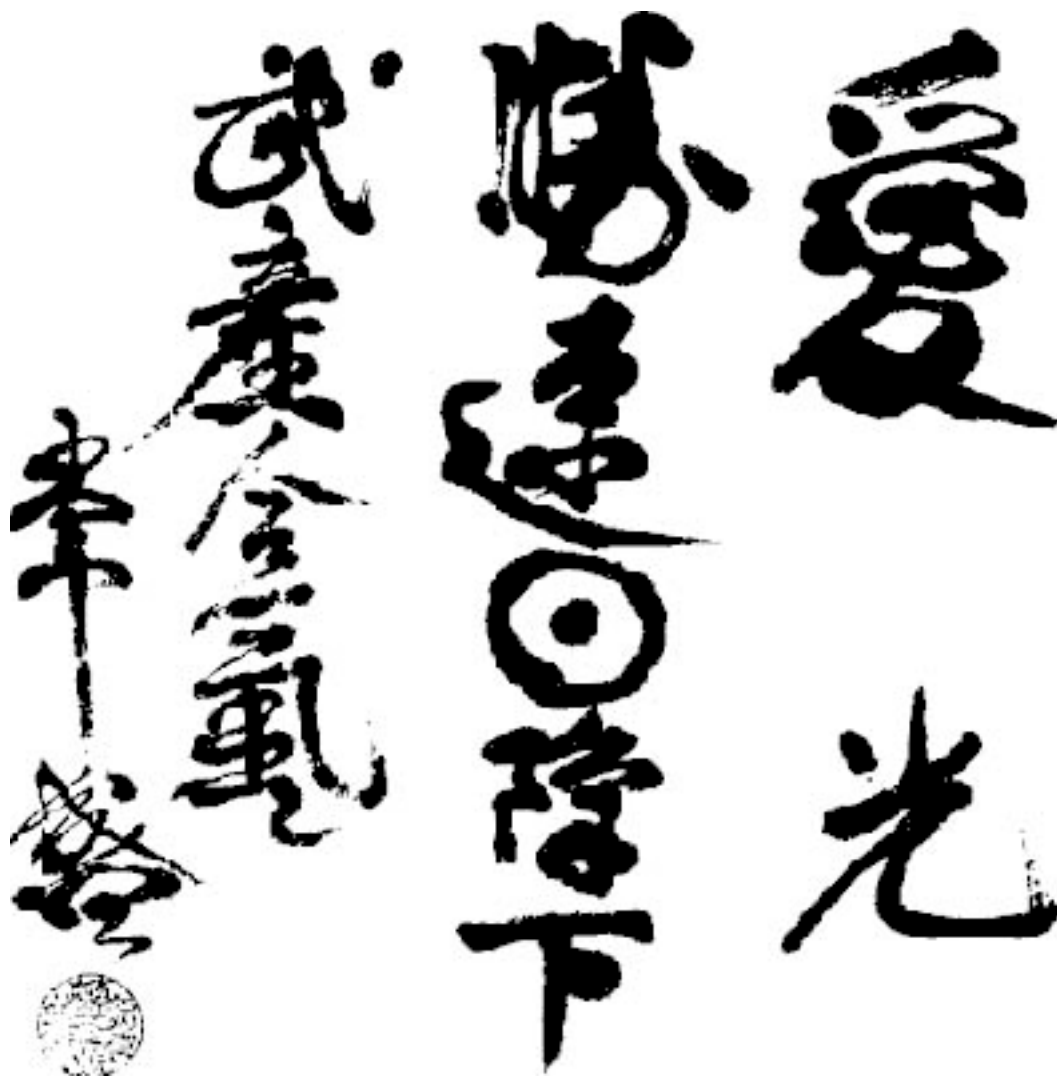 愛光
勝速⊙下
武産合氣
常盛